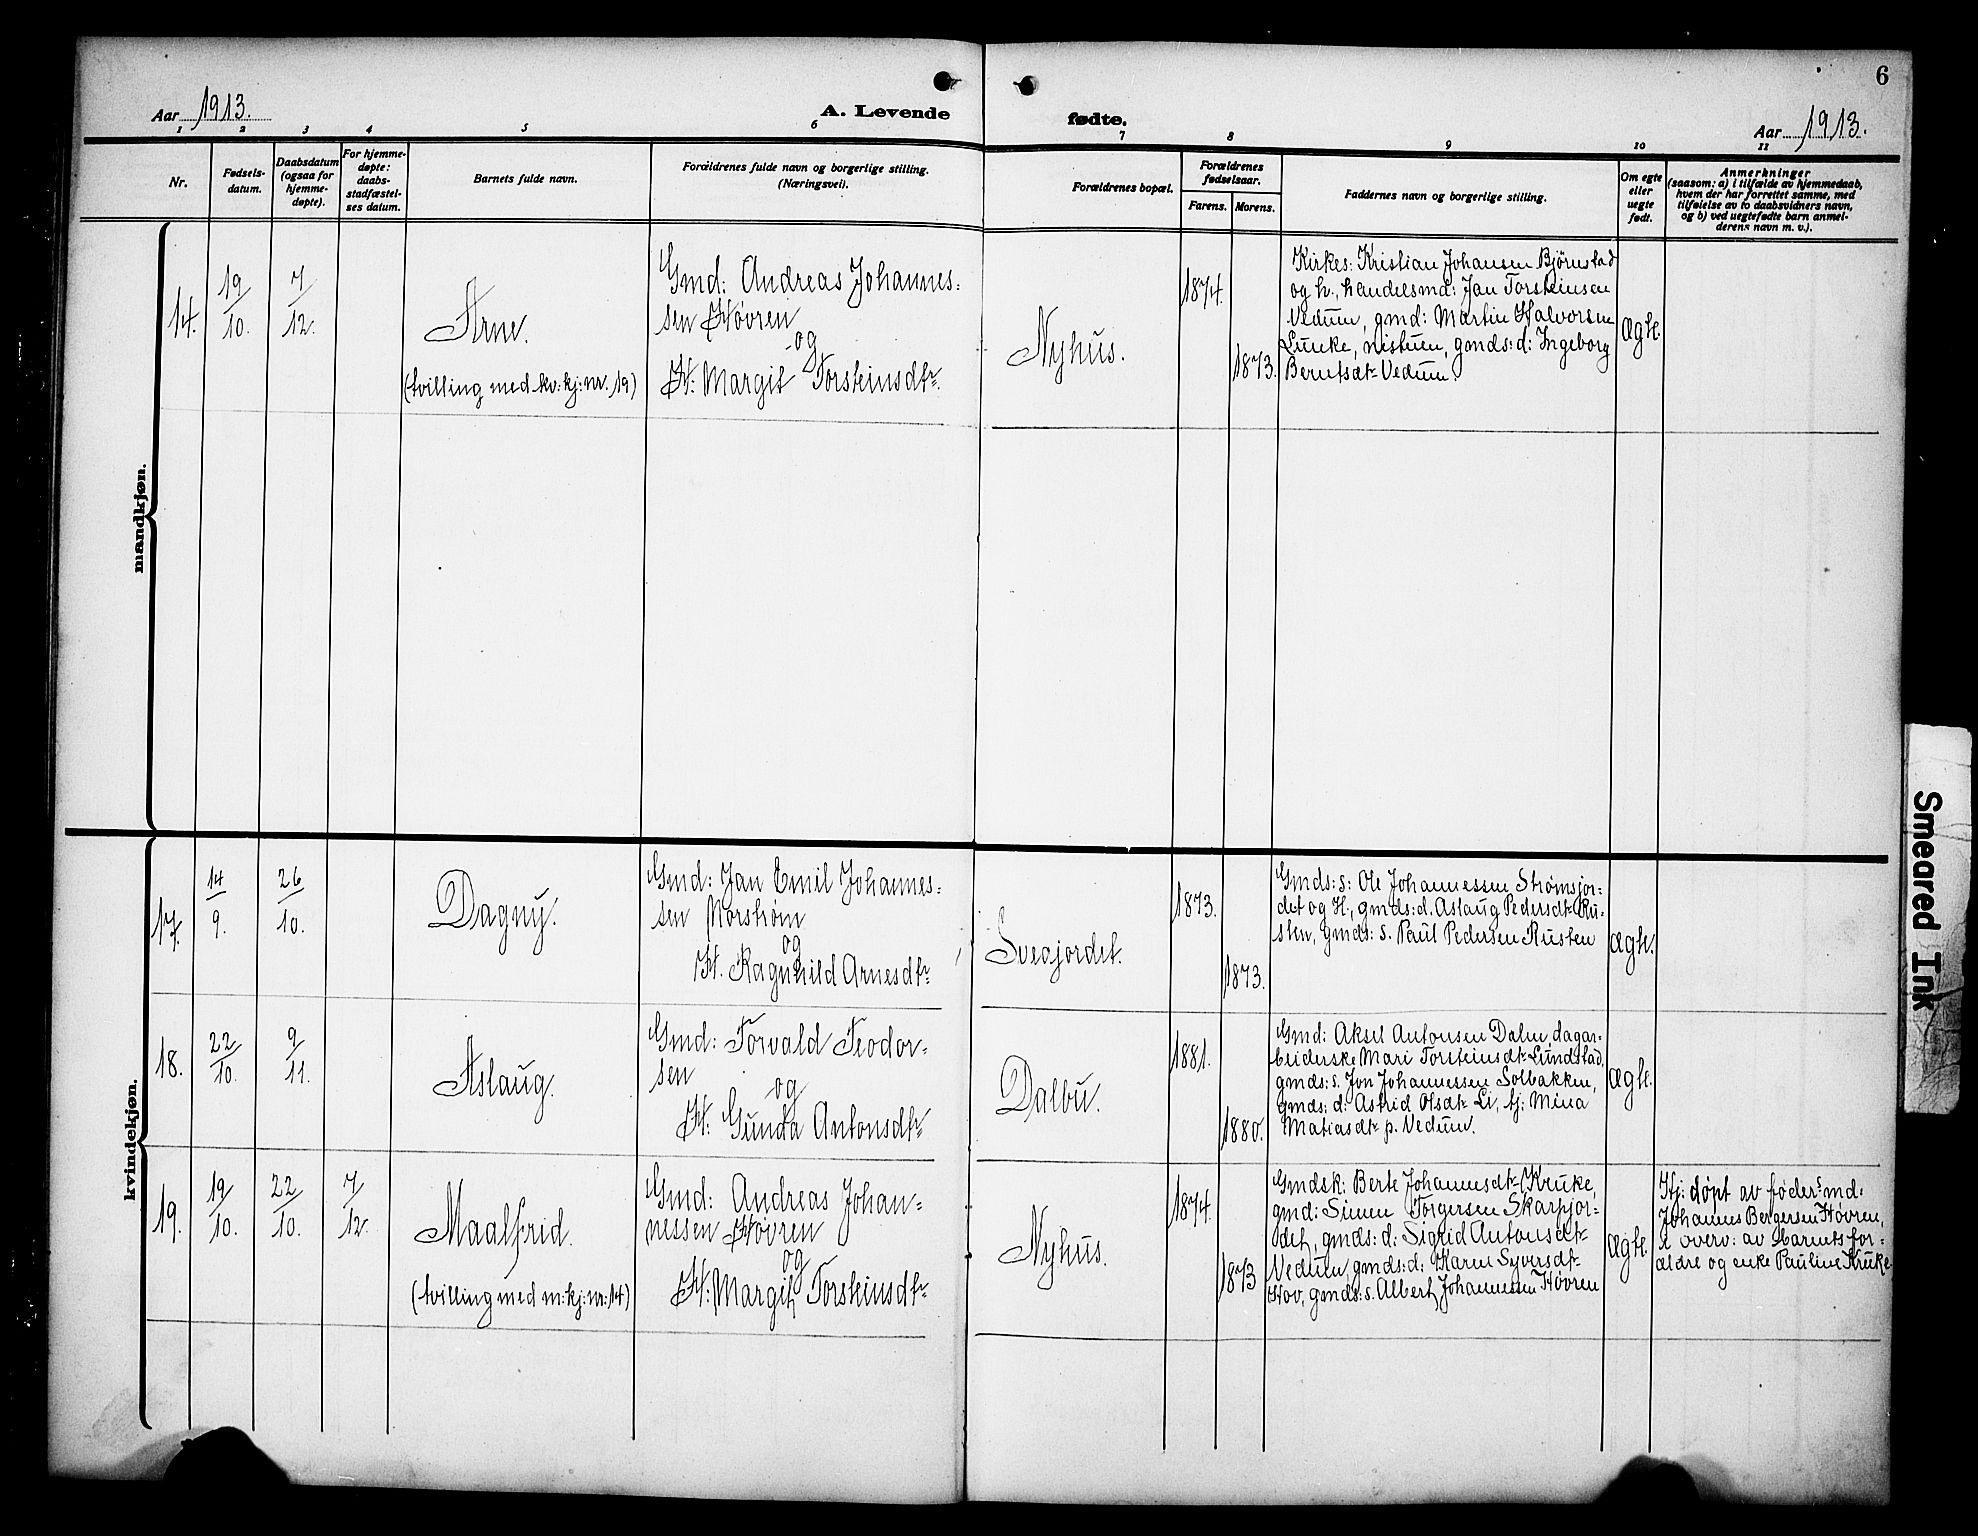 6
Aar 1913.
A. Levende fødte.
Aar 1913.
1 2 3 4 5 6 7 8 9 10 11
Nr.
Fødsels-
datum.
Daabsdatum
(ogsaa for
hjemme-
døpte).
For hjemme-
døpte:
daabs-
stadfæstel-
ses datum.
Barnets fulde navn.
Forældrenes fulde navn og borgerlige stilling.
(Næringsvei).
Forældrenes bopæl.
Forældrenes
fødselsaar.
Farens. Morens.
Faddernes navn og borgerlige stilling.
Om egte
eller
uegte
født.
Anmerkninger
(saasom: a) i tilfælde av hjemmedaab,
hvem der har forrettet samme, med
tilføielse av to daabsvidners navn,
og b) ved uegtefødte barn anmel-
derens navn m. v.).
mandkjøn.
14.
19/10.
7/12.
Arne.
(tvilling med kv: kj: nr. 19)
Gmd: Andreas Johannes=
sen Høvren
og
H: Margit Torsteinsdtr.
Nyhus.
1874.
1873.
Kirkes: Kristian Johansen Bjørnstad
og h., handelsmd: Jan Torsteinsen
Vedum, gmd: Martin Halvorsen
Luuke, nistuen, gmds: d: Ingeborg
Berntsdtr Vedum.
Ægte.
kvindekjøn.
17.
14/9.
26/10.
Dagny.
Gmd: Jan Emil Johannes=
sen Morstrøm
og
H. Ragnhild Arnesdtr
Sveajordet.
1873.
1873.
Gmds: s: Ole Johannessen Strømsjor=
det og H., gmds: d. Aslaug Pedersdtr Ru=
sten, gmds: s. Paul Pedersen Rusten
Ægte.
18.
22/10.
9/11.
Aslaug.
Gmd: Torvald Teodor=
sen
og
H: Gunda Antonsdtr
Dalbu.
1881.
1880.
Gmd: Aksel Antonsen Dalm, dagar=
beiderske Mari Torsteinsdtr Lundstad,
gmds: s. Jon Johannessen Solbakken,
gmds: d: Astrid Olsdtr Li, tj: Mina
Matiasdtr p. Vedum.
Ægte.
19.
19/10.
22/10.
7/12.
Maalfrid.
(tvilling med m: kj: nr: 14)
Gmd: Andreas Johan=
nessen Høvren
og
H: Margit Torsteinsdtr
Nyhus.
1874.
1873
Gmdsk: Berte Johannesdtr Kruke,
gmd: Simen Torgersen Skarpjor=
det, gmds: d: Sigrid Antonsdtr
Vedum, gmds: d: Karen Syversdtr
Hov, gmds: s. Albert Johannessen Høvren
Ægte.
Hj: døpt av føders md:
Johannes Bergersen Høvren,
i overv: av barnets for=
ældre og enke Pauline Kruke
Smeared Ink